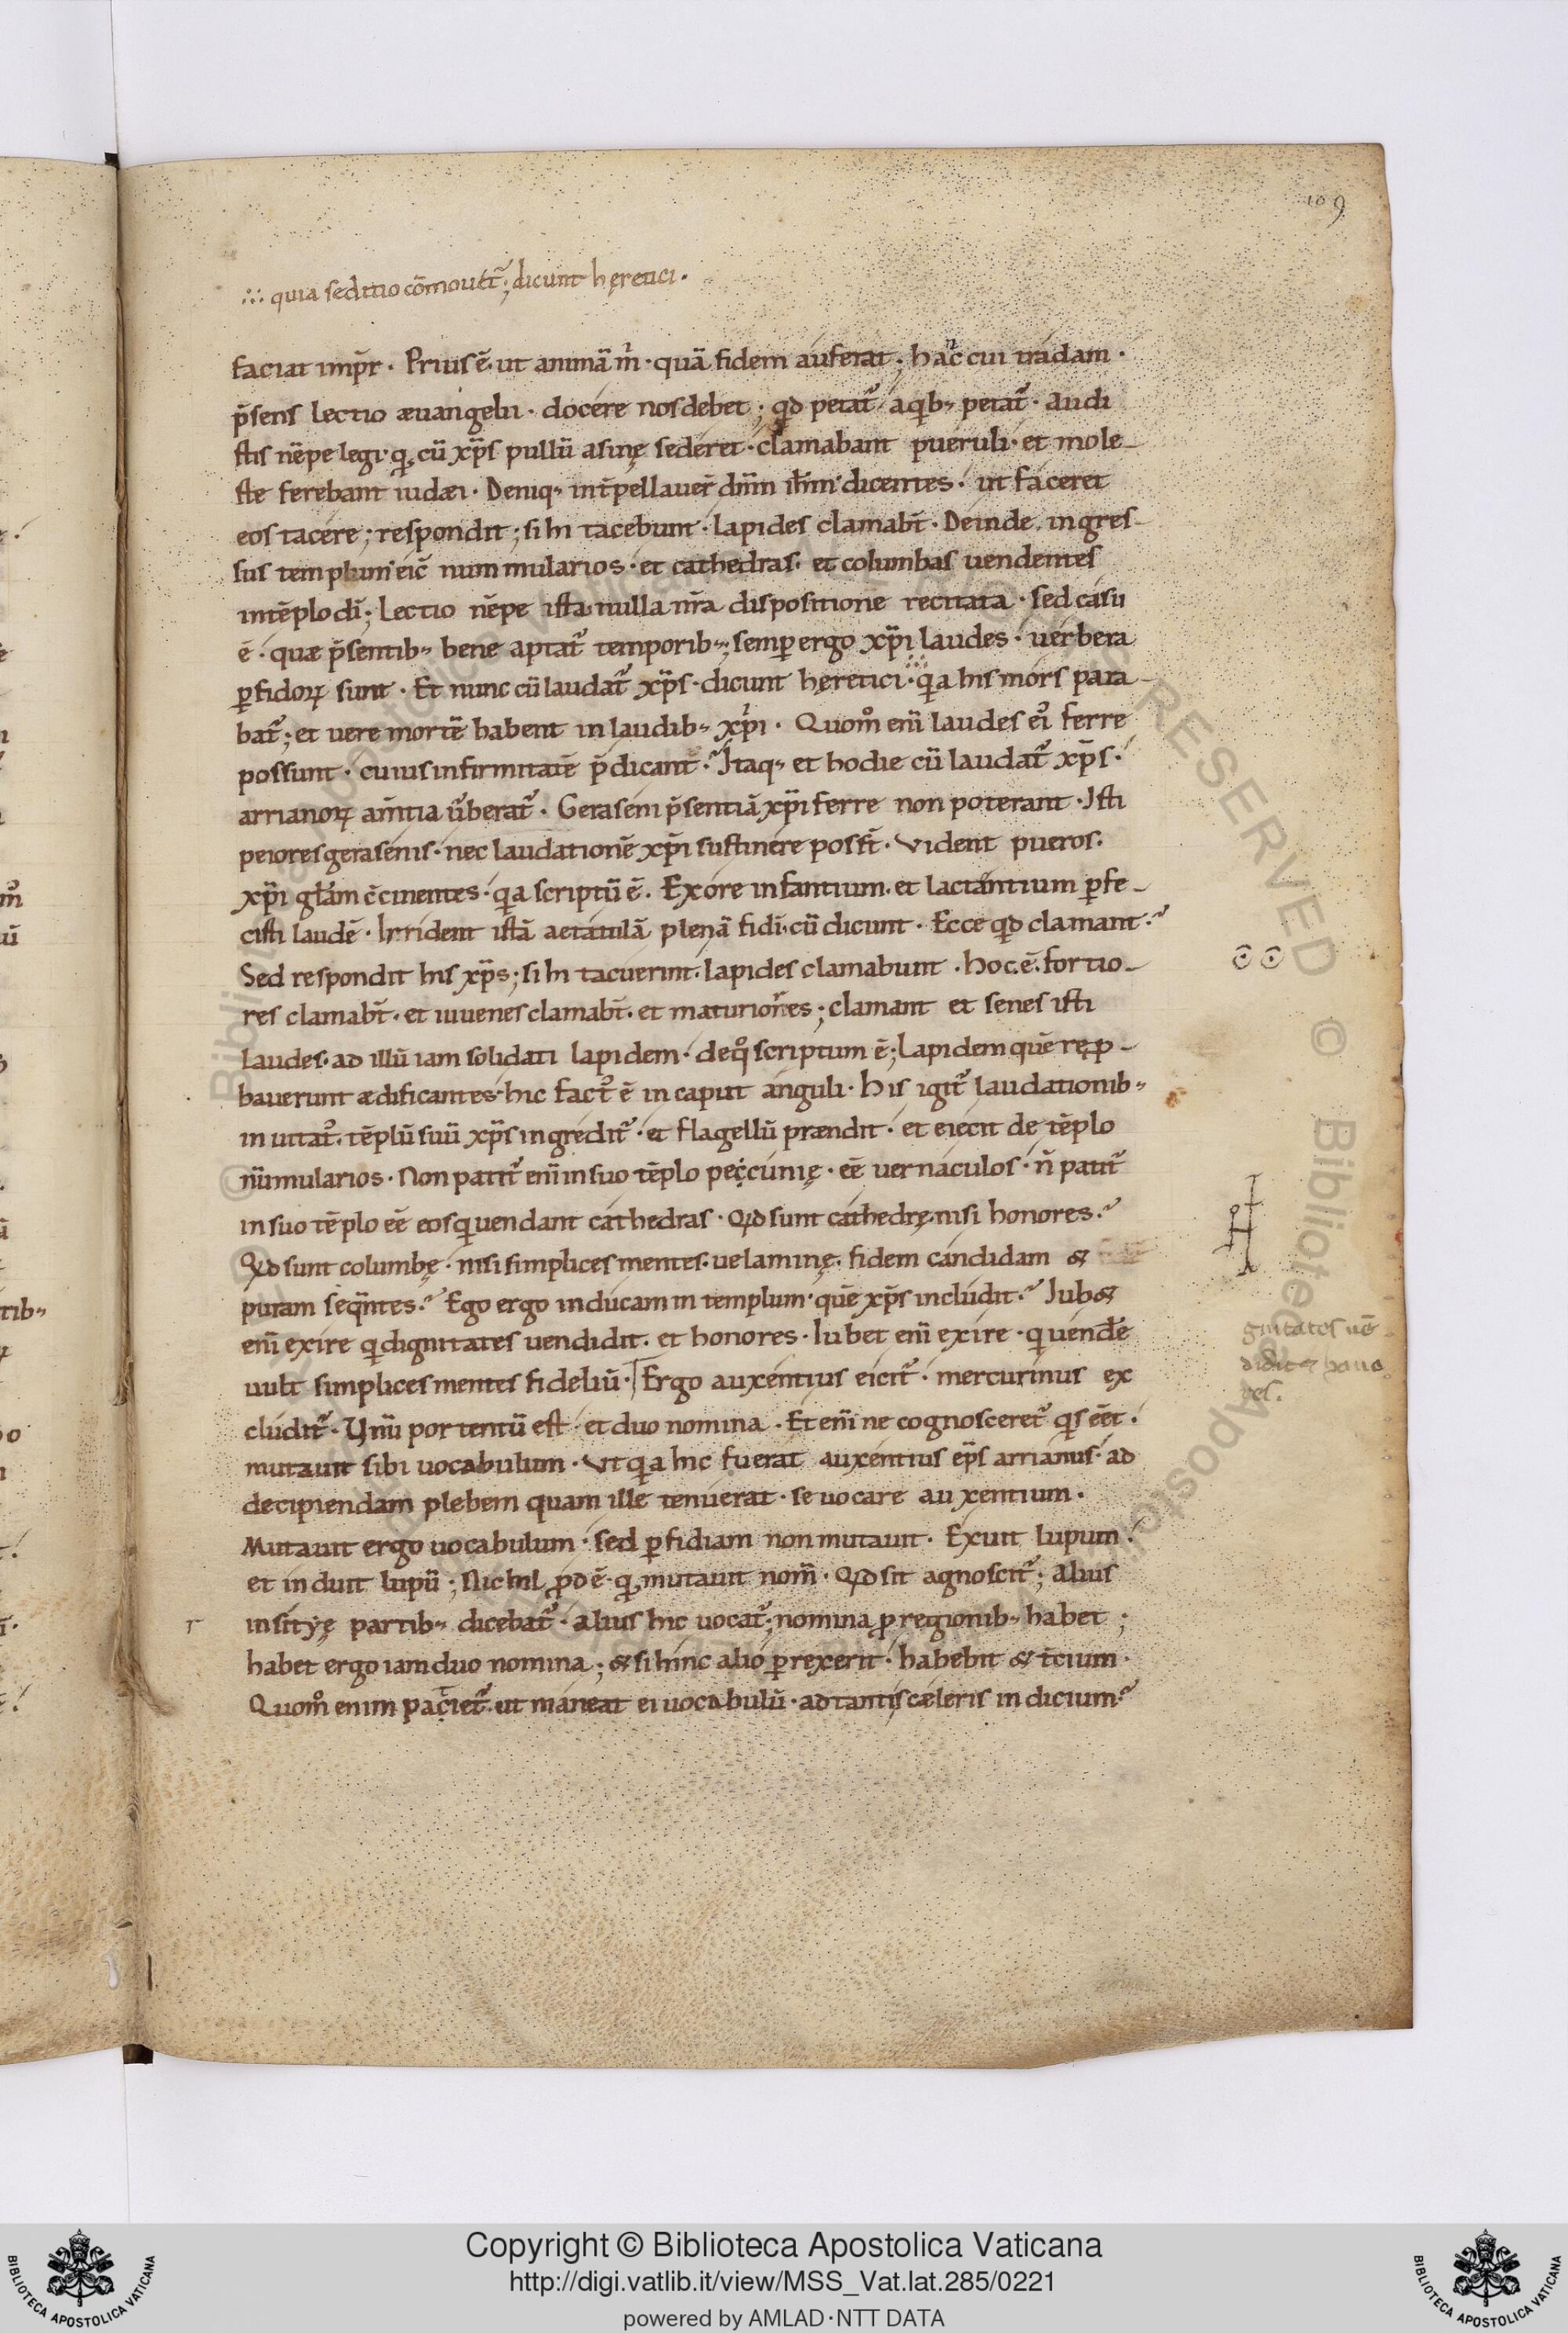 109
∴ quia seditio cōmouet᷑; dicunt hęretici.
faciat imp̄r. Prius ē. ut animā m̄. quā fidem auferat; hac̄ cui tradam.
p̄sens lectio æuangelii. docere nos debet; qd petat᷑ a qib; petat᷑. Audi
stis nēpe legi. q cū xp̄s pullū asinę sederet. clamabant pueruli. et mole-
ste ferebant iudæi. Deniq; int̄pellauer̄ dn̄m ih̄m dicentes. ut faceret
eos tacere; respondit; si hi tacebunt. lapides clamabt̄. Deinde ingres-
sus templum eic̄ nummularios. et cathedras. et columbas uendentes
in tēplo dī; Lectio nēpe ista nulla nr̄a dispositione recitata. sed casu
ē. quæ p̄sentib; bene aptat᷑ temporib;; semp ergo xp̄i laudes. uerbera
pfidoꝝ sunt. Et nunc cū laudat᷑ xp̄s. dicunt hęretici ∴ qa his mors para-
bat᷑; et uere mortē habent in laudib; xp̄i. Quom̊ eni laudes ei᷒ ferre
possunt. cuius infirmitatē p̄dicant? Itaq; et hodie cū laudat᷑ xp̄s.
arrianoꝝ am̄tia ūberat᷑. Geraseni p̄sentiā xp̄i ferre non poterant. Isti
peiores gerasenis. nec laudationē xp̄i sustinere posst̄. Vident pueros.
xp̄i gl̄am c̄cinentes. qa scriptū ē. Ex ore infantium. et lactantium pfe-
cisti laudē. Irrident istā aetatulā plenā fidī. cū dicunt. Ecce qd clamant?
Sed respondit his xp̄s; si hi tacuerint. lapides clamabunt. hoc. ē. fortio-
res clamabt̄. et iuuenes clamabt̄. et maturiores; clamant et senes isti
laudes. ad illū iam solidati lapidem. de qo scriptum ē; Lapidem quē rep̱ꝓ-
bauerunt ædificantes. hic fact᷒ ē in caput anguli. His igit᷑ laudationib;
inuitat᷒. tēplū suū xp̄s ingredit᷑. et flagellū prændit. et eiecit de tēplo
nūmularios. Non patit᷑ enī in suo tēplo peccunię. eē uernaculos. n̄ patit᷑
in suo tēplo eē eos q uendant cathedras. Qd sunt cathedrę. nisi honores?
Qd sunt columbę. nisi simplices mentes. uel aminę. fidem candidam &
puram seqn̄tes? Ego ergo inducam in templum. quē xp̄s includit? Iub&
enī exire q dignitates uendidit. et honores. Iubet enī exire. q uende
uult simplices mentes fideliū. Ergo auxentius eicit᷑. mercurinus ex
cludit᷑. Unū portentū est. et duo nomina. Et enī ne cognosceret᷑ qs eēt.
mutauit sibi uocabulum. Vt qa hic fuerat auxentius ep̄s arrianus. ad
decipiendam plebem quam ille tenuerat. se uocare auxentium.
Mutauit ergo uocabulum. sed pfidiam non mutauit. Exuit lupum.
et induit lupū; Nichil ꝓdē. q mutauit nom̄. Qd sit agnoscit᷑; Alius
in sityę partib; dicebat᷑. alius hic uocat᷑; nomina ꝓ regionib; habet;
habet ergo iam duo nomina; & si hinc alio prexerit. habebit & t̄cium.
Quom̊ enim paciet᷑. ut maneat ei uocabulū. ad tanti scæleris indicium?
gnitates uē
didit & hono
res.
r
Copyright © Biblioteca Apostolica Vaticana
http://digi.vatlib.it/view/MSS_Vat.lat.285/0221
powered by AMLAD·NTT DATA
BIBLIOTECA APOSTOLICA VATICANA
BIBLIOTECA APOSTOLICA VATICANA